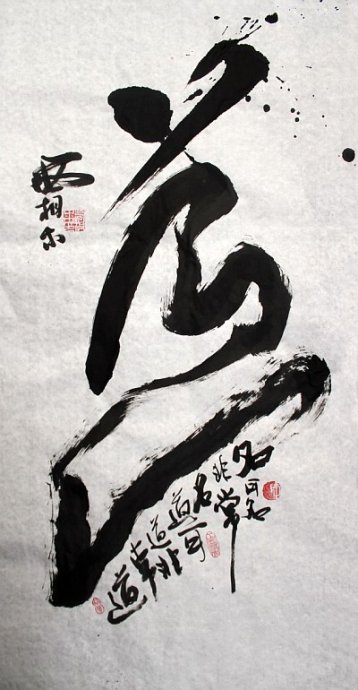 道
名可名
非常
名
道可
道非
常
道
相尔